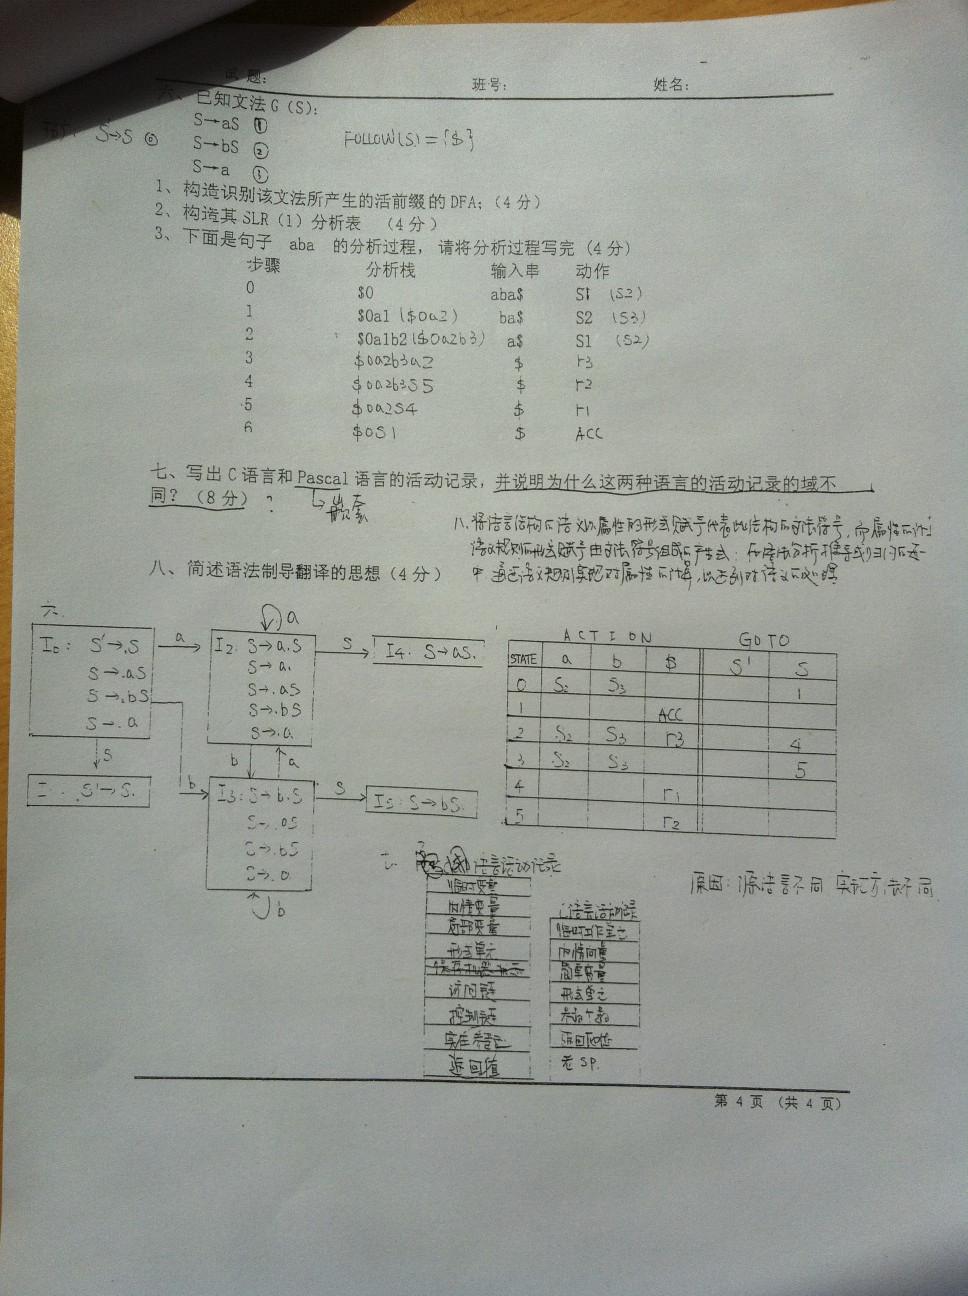 试 题:
班号:
姓名:
六、已知文法G（S）:
S→aS ①
S→bS ②
S→a ③
S'→S ⓪
FOLLOW(S)={$}
1、构造识别该文法所产生的活前缀的DFA;（4分）
2、构造其SLR（1）分析表 （4分）
3、下面是句子 aba 的分析过程, 请将分析过程写完（4分）
步骤 分析栈 输入串 动作
0 $0 aba$ S1 (S2)
1 $0a1 ($0a2) ba$ S2 (S3)
2 $0a1b2 ($0a2b3) a$ S1 (S2)
3 $0a2b3a2 $ r3
4 $0a2b3S5 $ r2
5 $0a2S4 $ r1
6 $0S1 $ ACC
七、写出C语言和Pascal语言的活动记录, 并说明为什么这两种语言的活动记录的域不
同? （8分） ?
嵌套
八、将语言结构的语义以属性的形式赋予代表此结构的文法符号, 而属性的计
语义规则的形式赋予由文法符号组成的产生式;
中 通过语义规则实现对属性的计算, 以达到对语义的处理
八、简述语法制导翻译的思想（4分）
六.
I0: S'→.S
S→.aS
S→.bS
S→.a
a
S
b
I2: S→a.S
S→a.
S→.aS
S→.bS
S→.a
a
S
I4: S→aS.
b a
I: S'→S.
I3: S→b.S
S→.aS
S→.bS
S→.a
S
I5: S→bS.
b
ACTION GOTO
STATE a b $ S' S
0 S2 S3 1
1 ACC
2 S2 S3 r3 4
3 S2 S3 5
4 r1
5 r2
七. 语言活动记录
临时变量
内情变量
局部变量
形式单元
访问链
控制链
返回值
C语言活动记录
临时工作单元
内情向量
简单变量
形式单元
参数个数
返回地址
老SP.
原因: 源语言不同, 实现方法不同
第 4 页 （共 4 页）